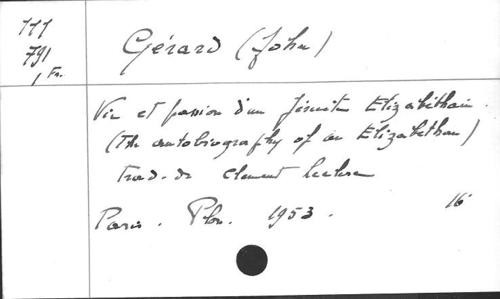 111
791
1 Fr.
Gérard (John)
Vie et passion d'un Jésuite Elizabéthain.
(The autobiography of an Elizabethan)
Trad. de Clement Leclerc
Paris. Plon. 1953. 16°